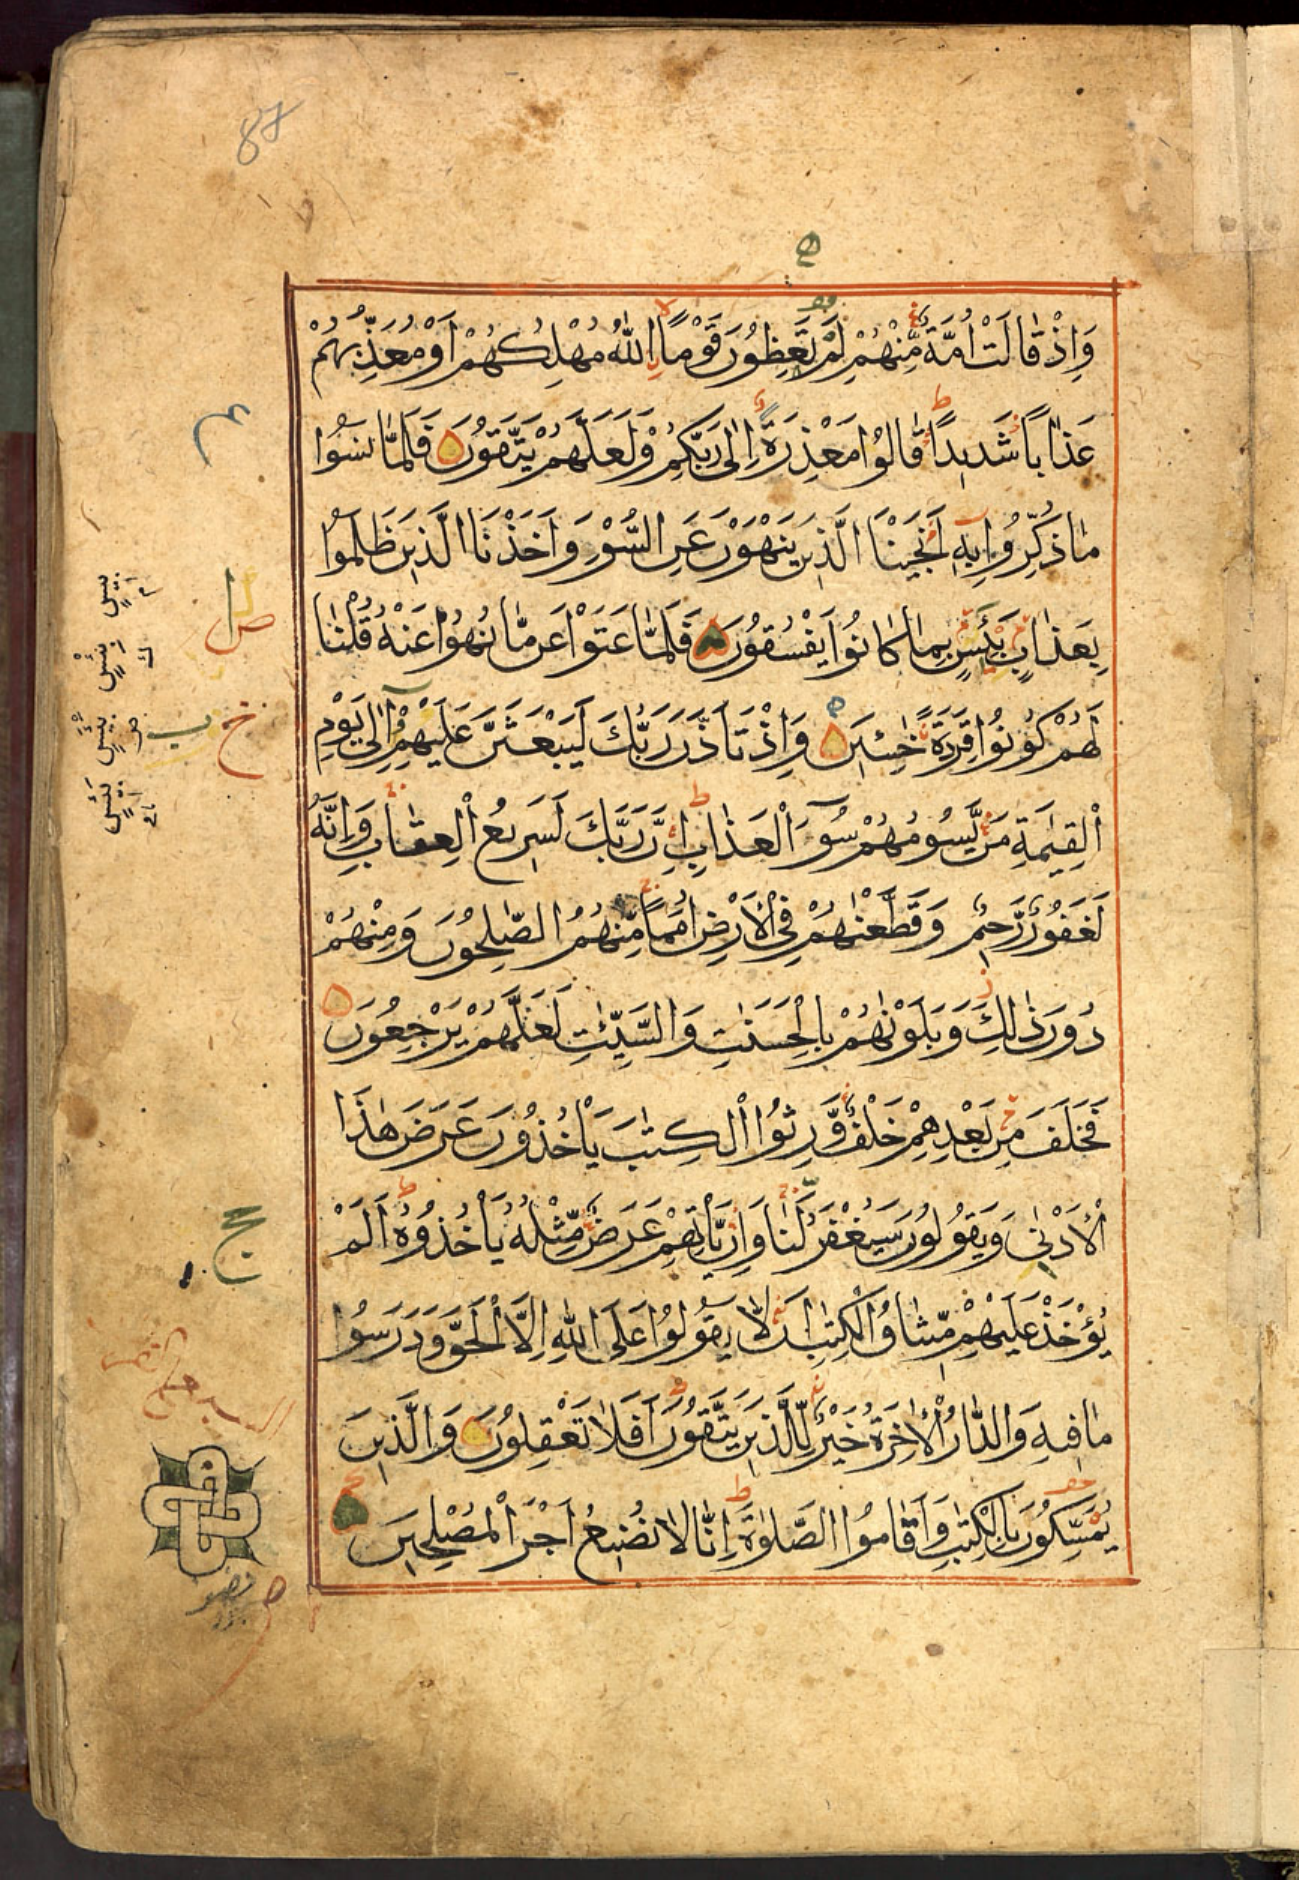 87
وَاِذْ قَالَتْ اُمَّةٌ مِّنْهُمْ لِمَ تَعِظُونَ قَوْمًا اِللّٰهُ مُهْلِكُهُمْ اَوْ مُعَذِّبُهُمْ
عَذَابًا شَدِيدًا قَالُوا مَعْذِرَةٌ اِلٰى رَبِّكُمْ وَلَعَلَّهُمْ يَتَّقُونَ فَلَمَّا نَسُوا
مَا ذُكِّرُوا بِهِ اَنْجَيْنَا الَّذِينَ يَنْهَوْنَ عَنِ السُّوۤءِ وَاَخَذْنَا الَّذِينَ ظَلَمُوا
بِعَذَابٍ بَئِيسٍ بِمَا كَانُوا يَفْسُقُونَ فَلَمَّا عَتَوْا عَنْ مَّا نُهُوا عَنْهُ قُلْنَا
لَهُمْ كُونُوا قِرَدَةً خٰسِئِينَ وَاِذْ تَاَذَّنَ رَبُّكَ لَيَبْعَثَنَّ عَلَيْهِمْ اِلٰى يَوْمِ
الْقِيٰمَةِ مَنْ يَّسُومُهُمْ سُوۤءَ الْعَذَابِ اِنَّ رَبَّكَ لَسَرِيعُ الْعِقَابِ وَاِنَّهُ
لَغَفُورٌ رَّحِيمٌ وَقَطَّعْنٰهُمْ فِي الْاَرْضِ اُمَمًا مِّنْهُمُ الصّٰلِحُونَ وَمِنْهُمْ
دُونَ ذٰلِكَ وَبَلَوْنٰهُمْ بِالْحَسَنٰتِ وَالسَّيِّئٰتِ لَعَلَّهُمْ يَرْجِعُونَ
فَخَلَفَ مِنْ بَعْدِهِمْ خَلْفٌ وَّرِثُوا الْكِتٰبَ يَأْخُذُونَ عَرَضَ هٰذَا
الْاَدْنٰى وَيَقُولُونَ سَيُغْفَرُ لَنَا وَاِنْ يَّأْتِهِمْ عَرَضٌ مِّثْلُهُ يَأْخُذُوهُ اَلَمْ
يُؤْخَذْ عَلَيْهِمْ مِّيثَاقُ الْكِتٰبِ اَنْ لَّا يَقُولُوا عَلَى اللّٰهِ اِلَّا الْحَقَّ وَدَرَسُوا
مَا فِيهِ وَالدَّارُ الْاٰخِرَةُ خَيْرٌ لِّلَّذِينَ يَتَّقُونَ اَفَلَا تَعْقِلُونَ وَالَّذِينَ
يُمَسِّكُونَ بِالْكِتٰبِ وَاَقَامُوا الصَّلٰوةَ اِنَّا لَا نُضِيعُ اَجْرَ الْمُصْلِحِينَ